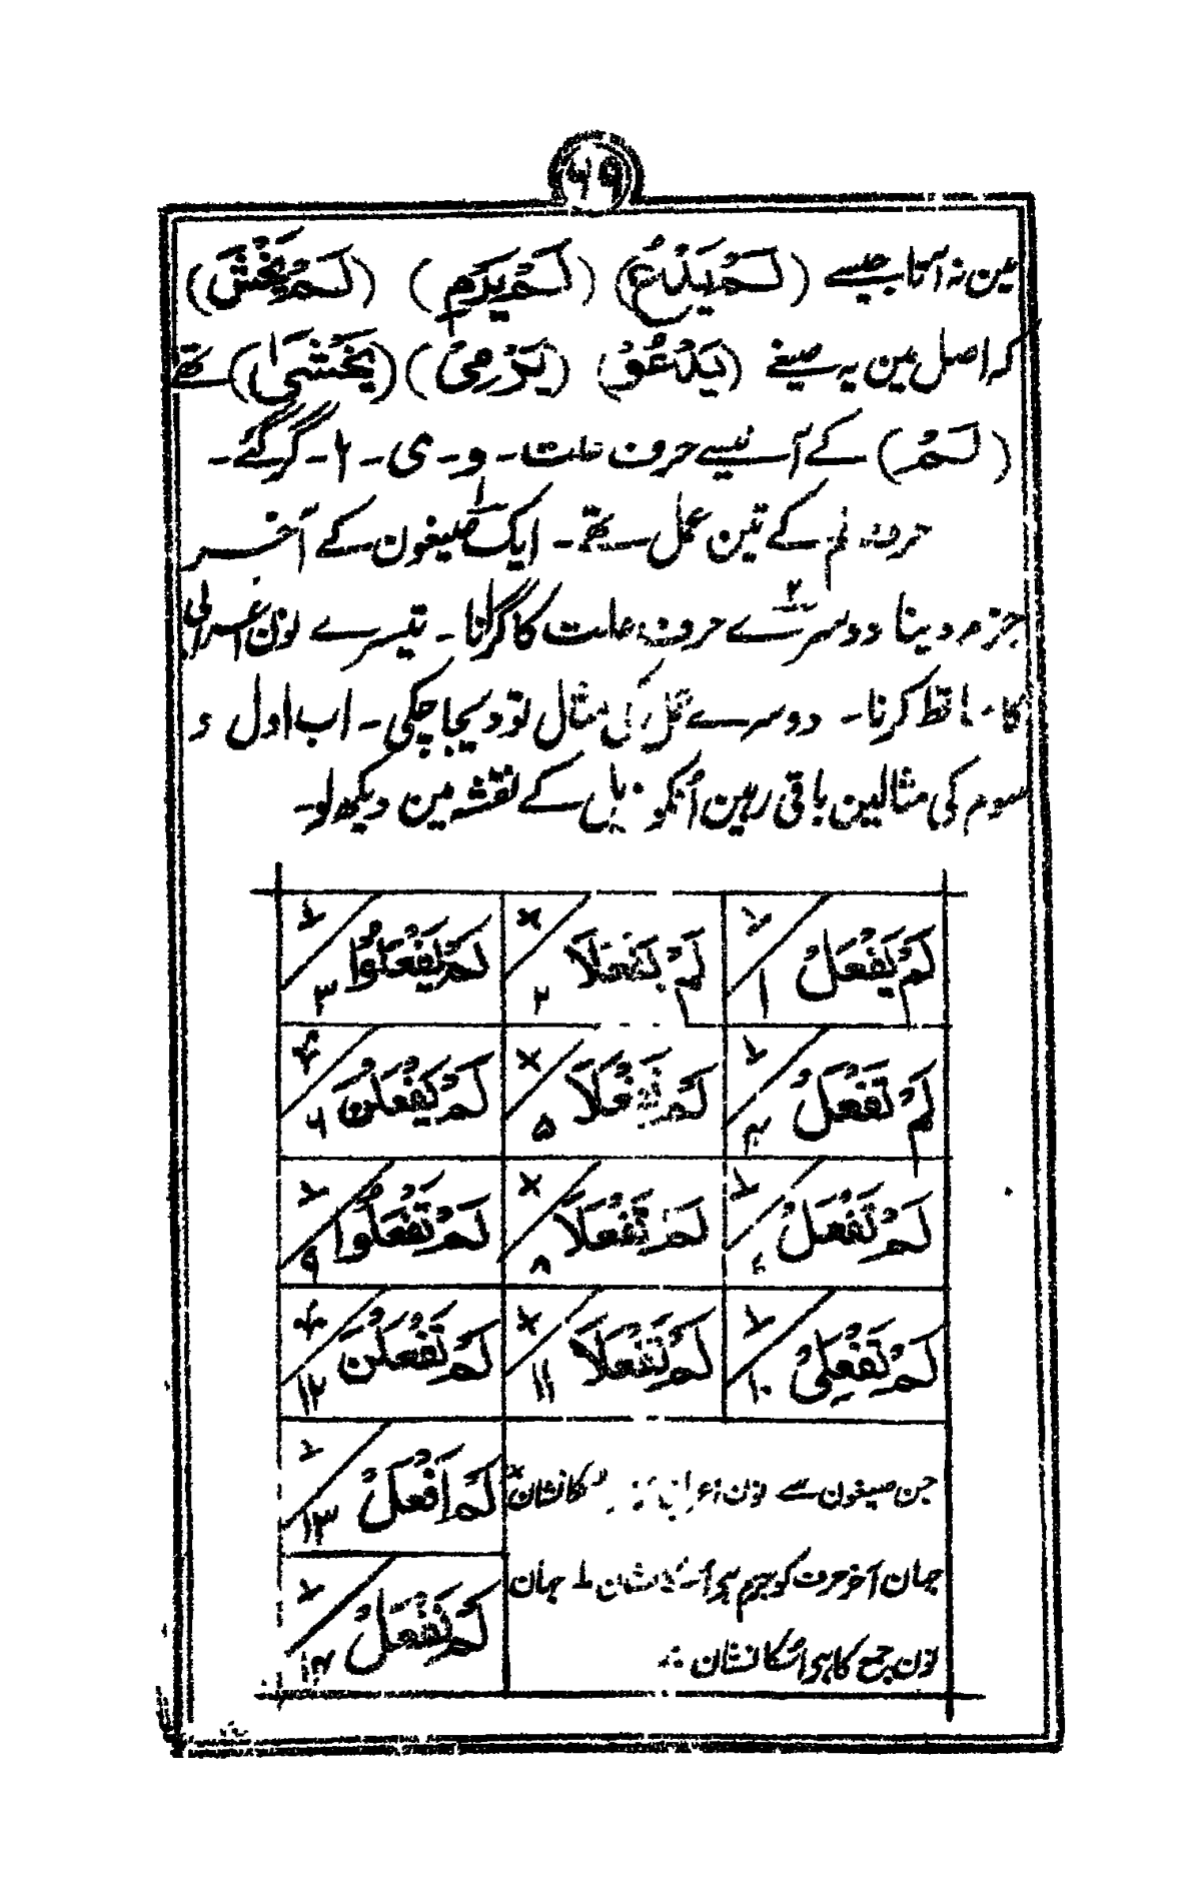 ۶۹
مین نہ آتا جیسے (لَمْ یَدْعُ) (لَمْ یَرْمِ) (لَمْ یَخْشَ)
کہ اصل مین یہ صیغے (یَدْعُوْ) (یَرْمِیْ) (یَخْشٰی) تھے
(لَمْ) کے آنیسے حروف علت۔ و۔ ی۔ ا۔ گر گئے۔
حروف لم کے تین عمل تھے۔ ایک صیغون کے آخر
جزم دینا دوسرے حروف علت کا گرانا۔ تیسرے نون اعرابی
کا ساقط کرنا۔ دوسرے عمل کی مثال تو دیجا چکی۔ اب اول و
سوم کی مثالین باقی رہین اُنکو ذیل کے نقشہ مین دیکھ لو۔
لَمْ یَفْعَلْ ۱ لَمْ یَفْعَلَا × ۲ لَمْ یَفْعَلُوْا ۳
لَمْ تَفْعَلْ ۴ لَمْ تَفْعَلَا × ۵ لَمْ یَفْعَلْنَ ۶
لَمْ تَفْعَلْ لَمْ تَفْعَلَا × ۸ لَمْ تَفْعَلُوْا ۹
لَمْ تَفْعَلِیْ ۱۰ لَمْ تَفْعَلَا × ۱۱ لَمْ تَفْعَلْنَ ۱۲
لَمْ اَفْعَلْ ۱۳
لَمْ نَفْعَلْ ۱۴
جن صیغون سے نون اعرابی کا نشان ×
جہان آخر حرف کو جزم ہی نشان جہان
نون جمع کا ہی اسکا نشان